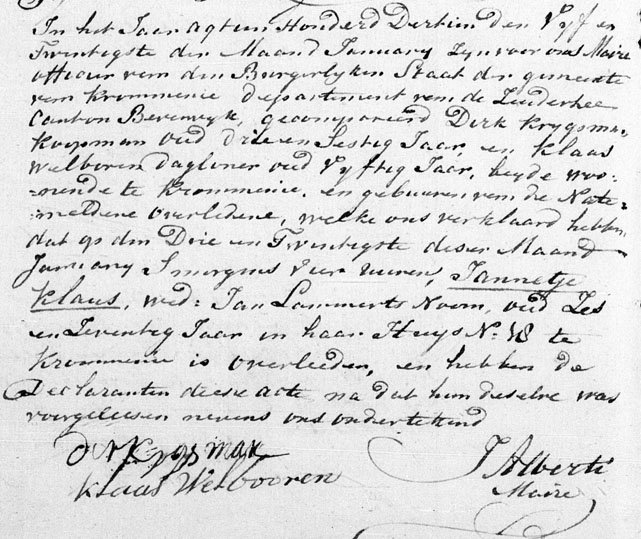 In het Jaar agtien Honderd Dertien den Vyf en
Twintigste der Maand January Zyn voor ons Maire
officier van den Burgerlyken Staat der gemeente
van Krommenie Departement van de Zuiderhee
Canton Beverwyk, gecompareerd Dirk Krygsman,
Koopman oud Drie en Sestig Jaar, en Klaas
Welboren dagloner oud Vyftig Jaar, beyde woo-
-nende te Krommenie, en gebuuren van de Nate-
-meldene overledene, welke ons verklaard hebben,
dat op den Drie en Twintigste deser Maand
January Smorgens vier uuren, Jannetje
Klaus, wed: Jan Lammerts Noom, oud Zes
en Zeventig Jaar in haar Huys N: 18 te
Krommenie is overleeden, en hebben de
Declaranten deese acte na dat hun deselve was
voorgeleesen nevens ons ondertekend
Dirk Krygsman
Klaas Welbooren
J Alberti
Maire